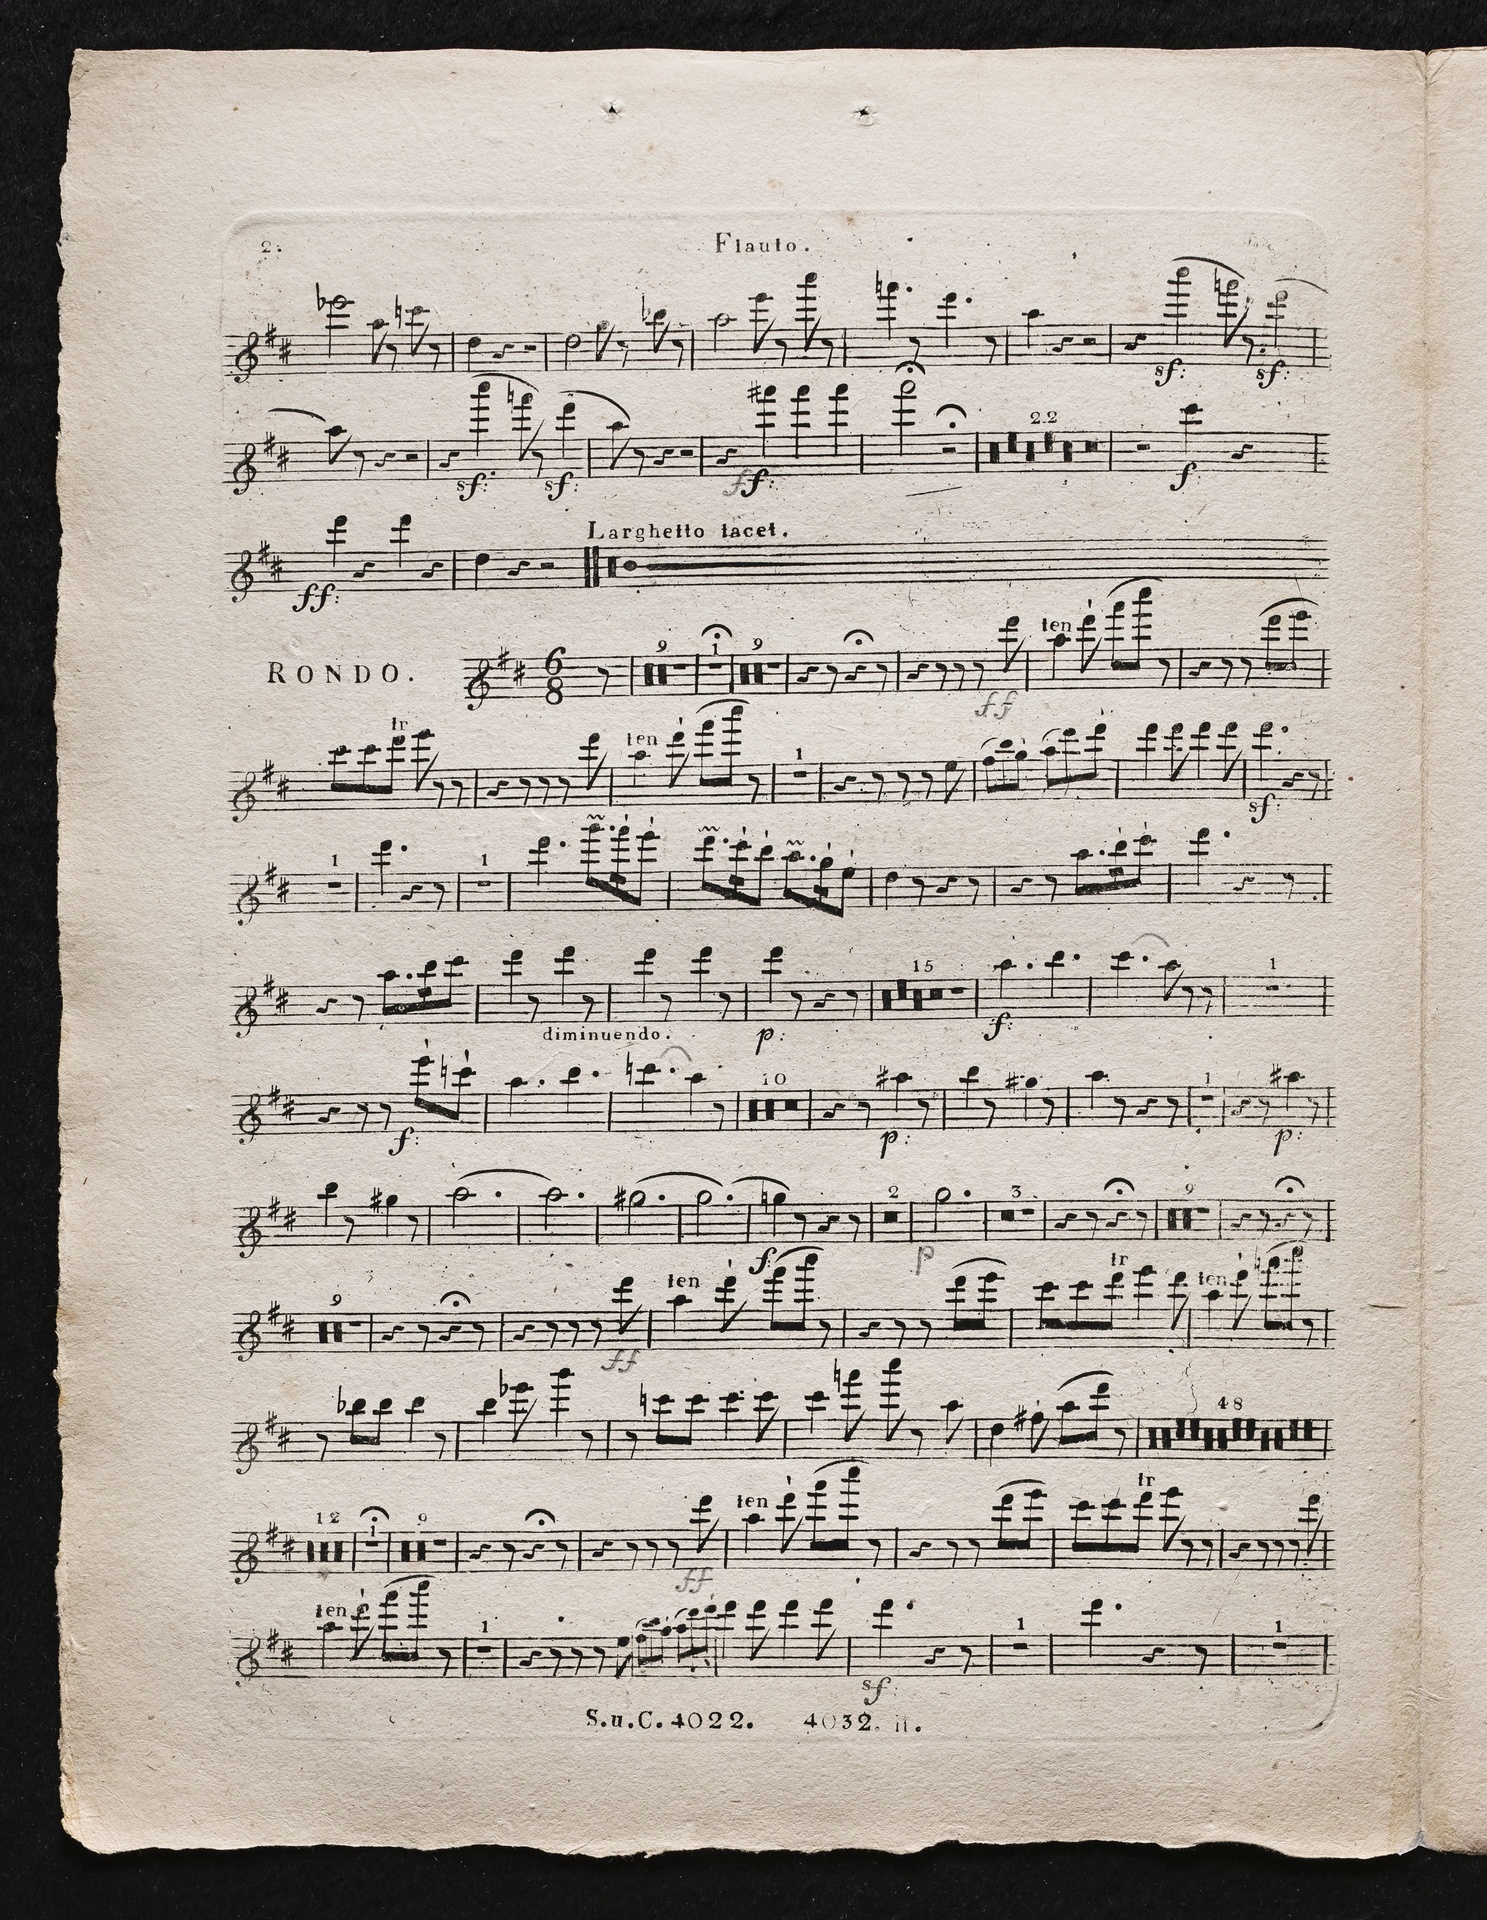 2:
Flauto.
sf: sf:
sf: sf: ff: 22 f:
Larghetto tacet.
ff:
RONDO. 6/8 9 1 9 ten
ff
tr ten 1
sf:
1 1
15 1
diminuendo. p: f:
10 1
f: p: p:
2 3 9
f: p
9 ten tr ten
ff
48
12 1 9 ten tr
ff
ten 1 1 1
sf
S.u.C. 4022. 4032. H.